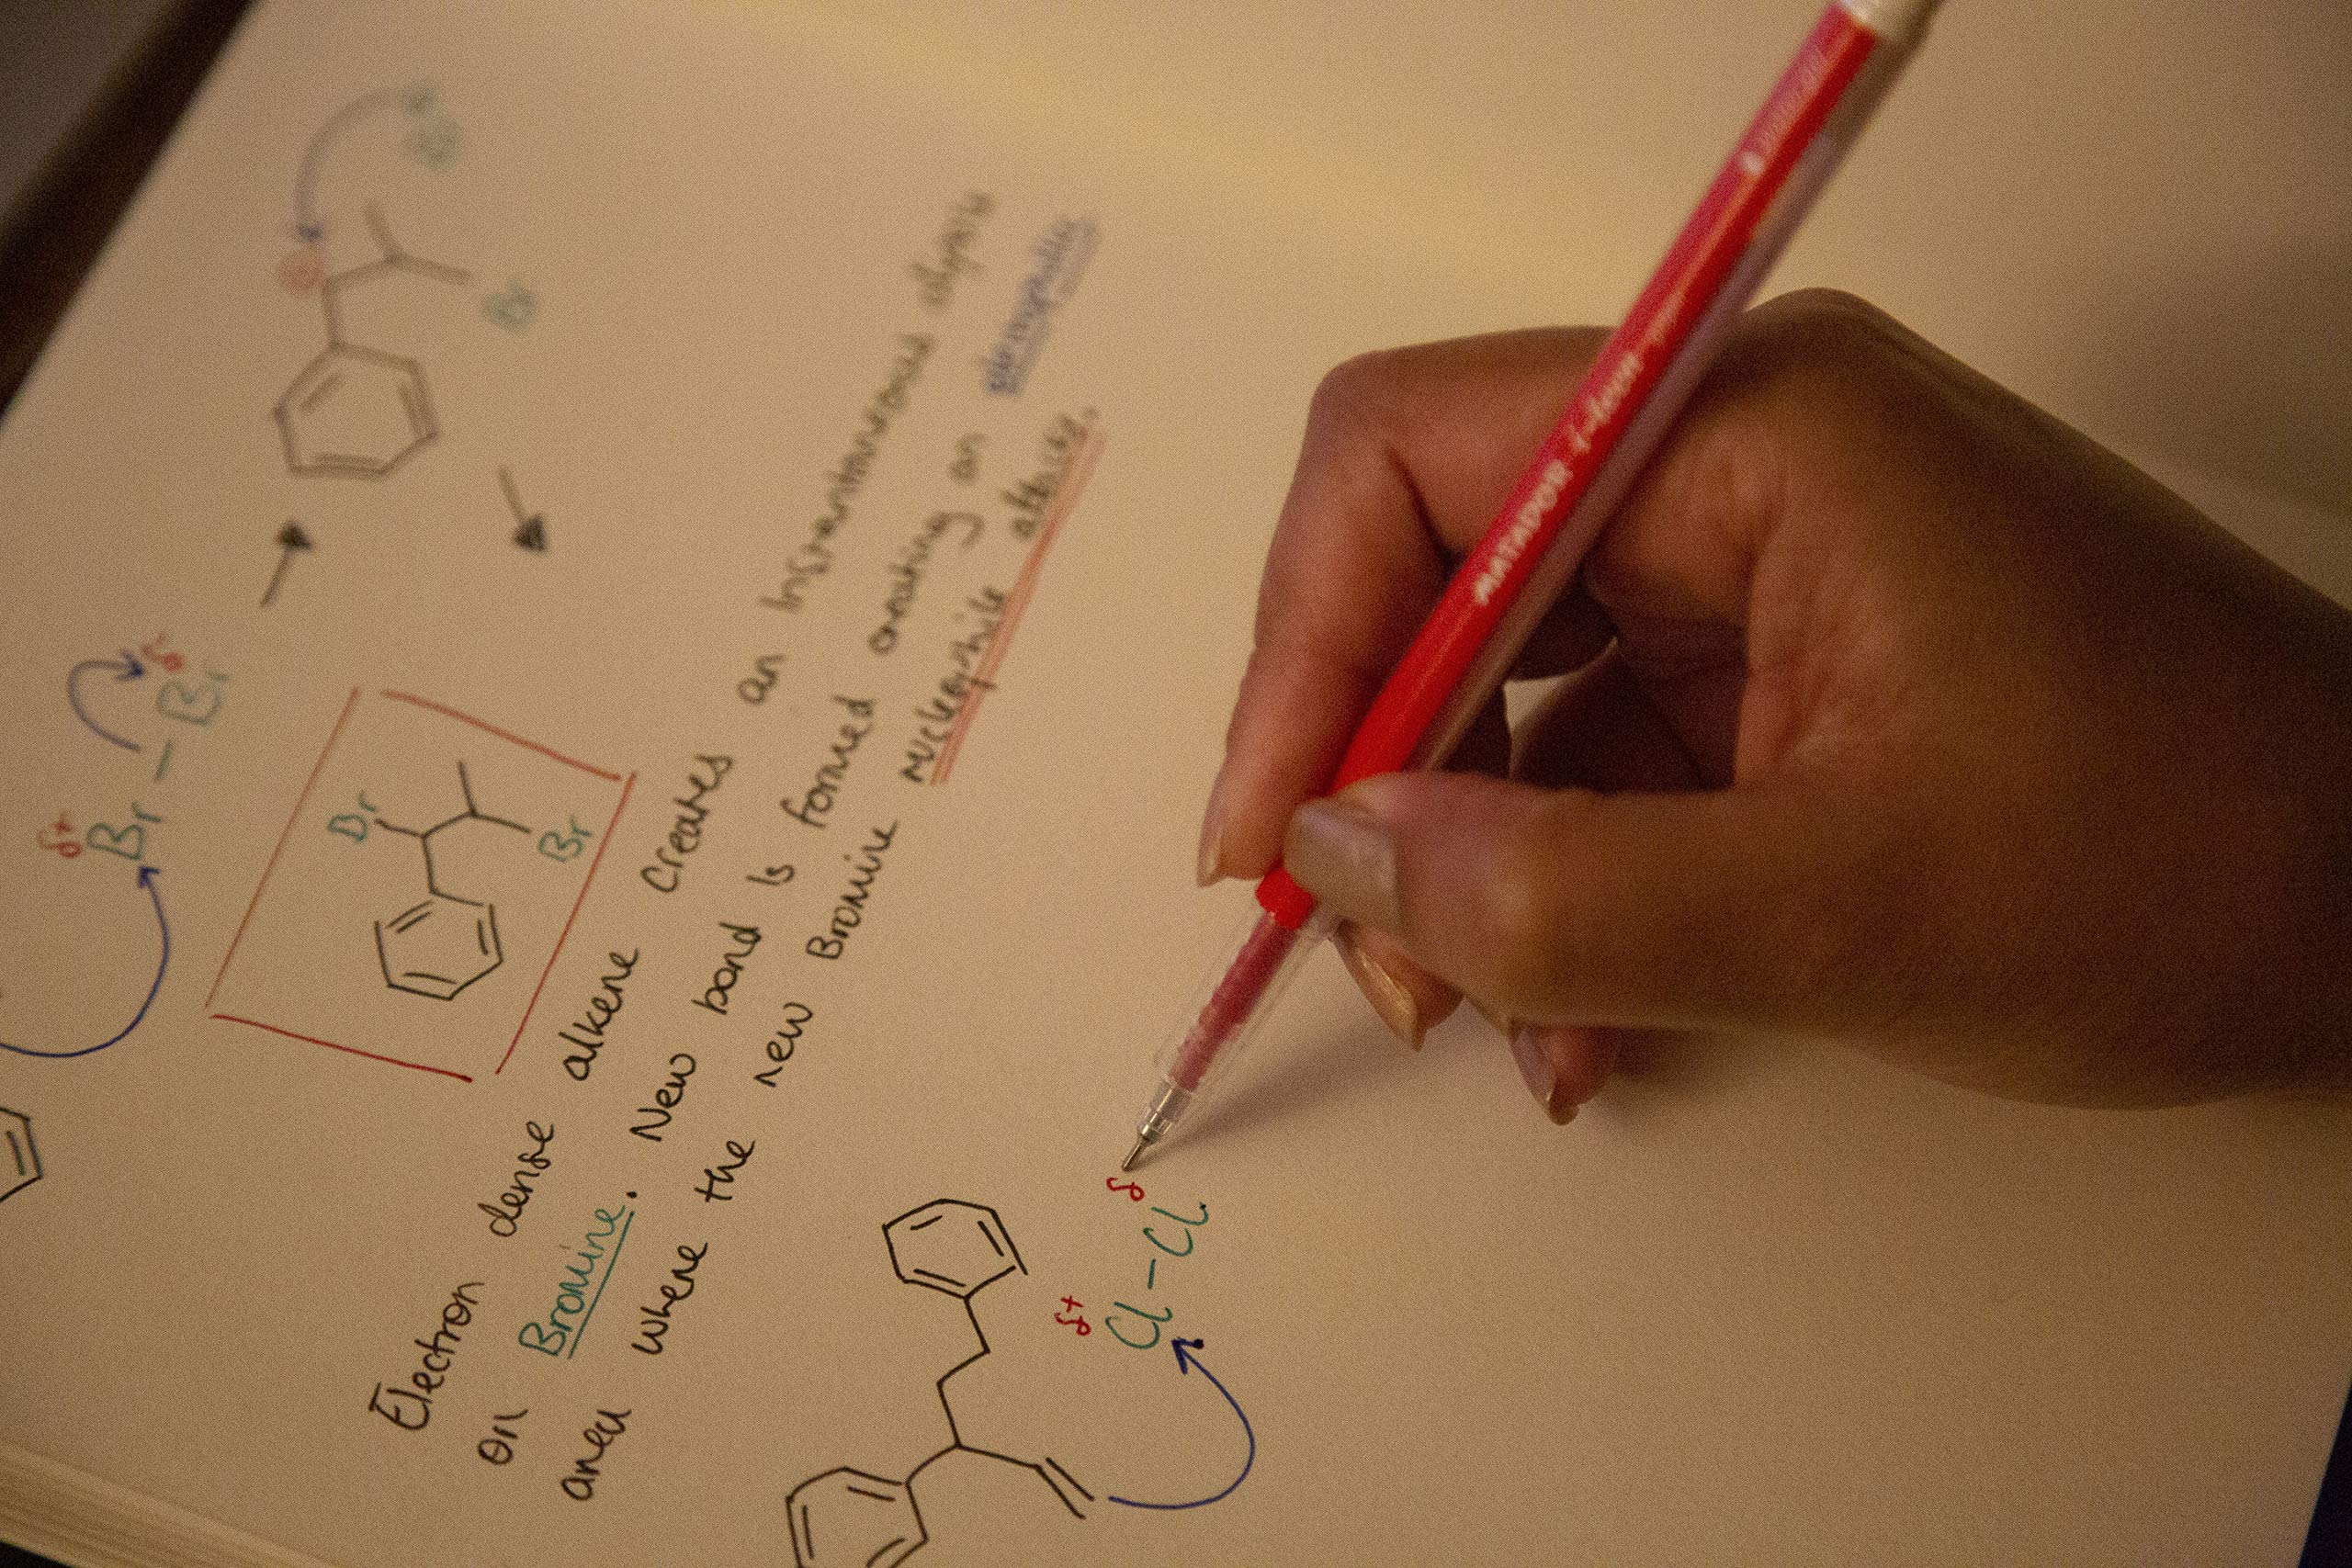 Br
δ+ Br – Br δ
Br
Br
Br
Electron dense alkene creates an Instantaneous dipole
on Bromine. New bond is formed creating an
area where the new Bromine nucleophile attacks.
δ+ Cl – Cl δ
MATADOR